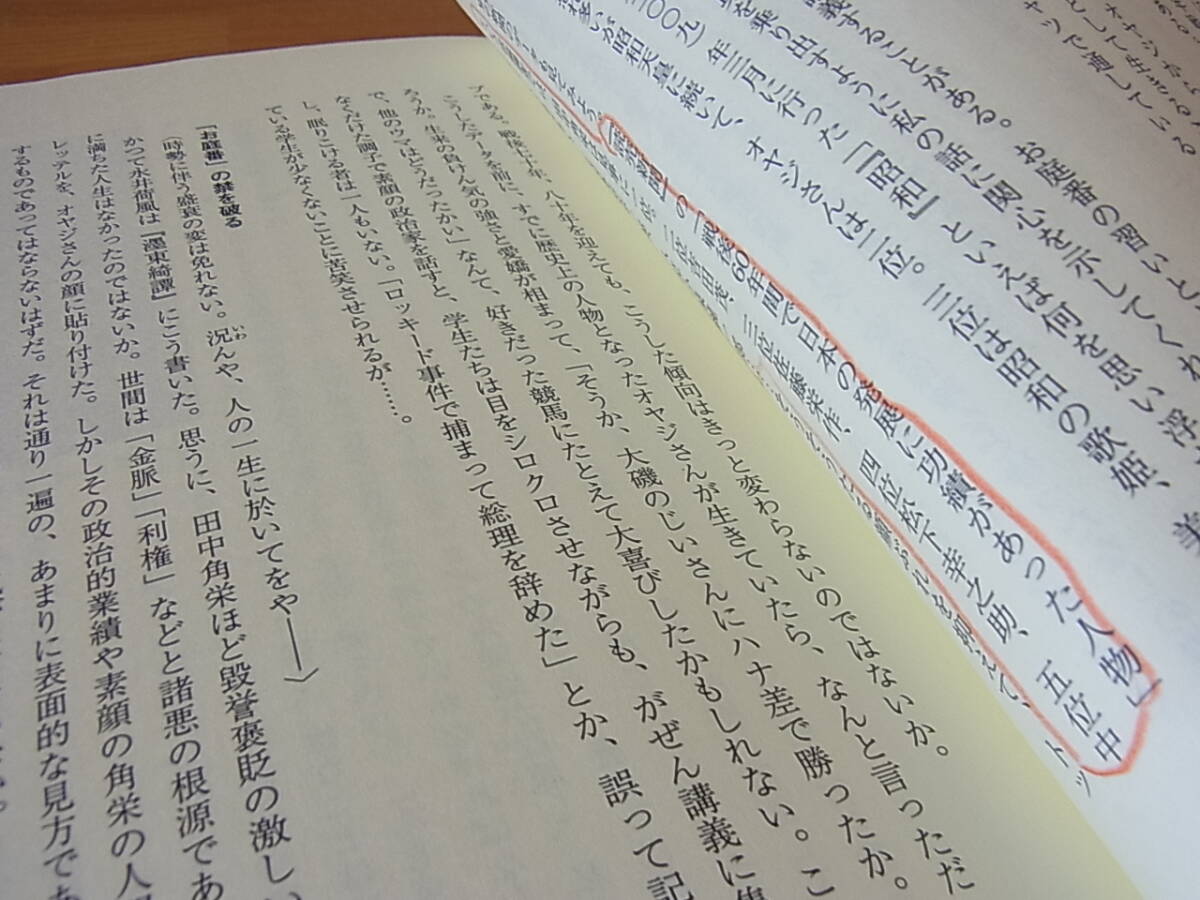 オヤジから
として生きる
ヤツで通している
義することがある。お庭番の習いと
を乗り出すように私の話に関心を示してくれ
二〇〇九）年三月に行った「『昭和』といえば何を思い浮
昭和天皇に続いて、オヤジさんは二位。三位は昭和の歌姫、美
の「戦後60年間で日本の発展に功績があった人物」
三位佐藤栄作、四位松下幸之助、五位中
トッ
プである。戦後七十年、八十年を迎えても、こうした傾向はきっと変わらないのではないか。
こうしたデータを前に、すでに歴史上の人物となったオヤジさんが生きていたら、なんと言っただ
ろうか。生来の負けん気の強さと愛嬌が相まって、「そうか、大磯のじいさんにハナ差で勝ったか。
で、他のウマはどうだったかい」なんて、好きだった競馬にたとえて大喜びしたかもしれない。こ
なくだけた調子で素顔の政治家を話すと、学生たちは目をシロクロさせながらも、がぜん講義に集
し、眠りこける者は一人もいない。「ロッキード事件で捕まって総理を辞めた」とか、誤って記
ている学生が少なくないことに苦笑させられるが……。
「お庭番」の禁を破る
〈時勢に伴う盛衰の変は免れない。況んや、人の一生に於いてをや――〉
かつて永井荷風は『濹東綺譚』にこう書いた。思うに、田中角栄ほど毀誉褒貶の激し
に満ちた人生はなかったのではないか。世間は「金脈」「利権」などと諸悪の根源であ
レッテルを、オヤジさんの顔に貼り付けた。しかしその政治的業績や素顔の角栄の人
するものであってはならないはずだ。それは通り一遍の、あまりに表面的な見方であ